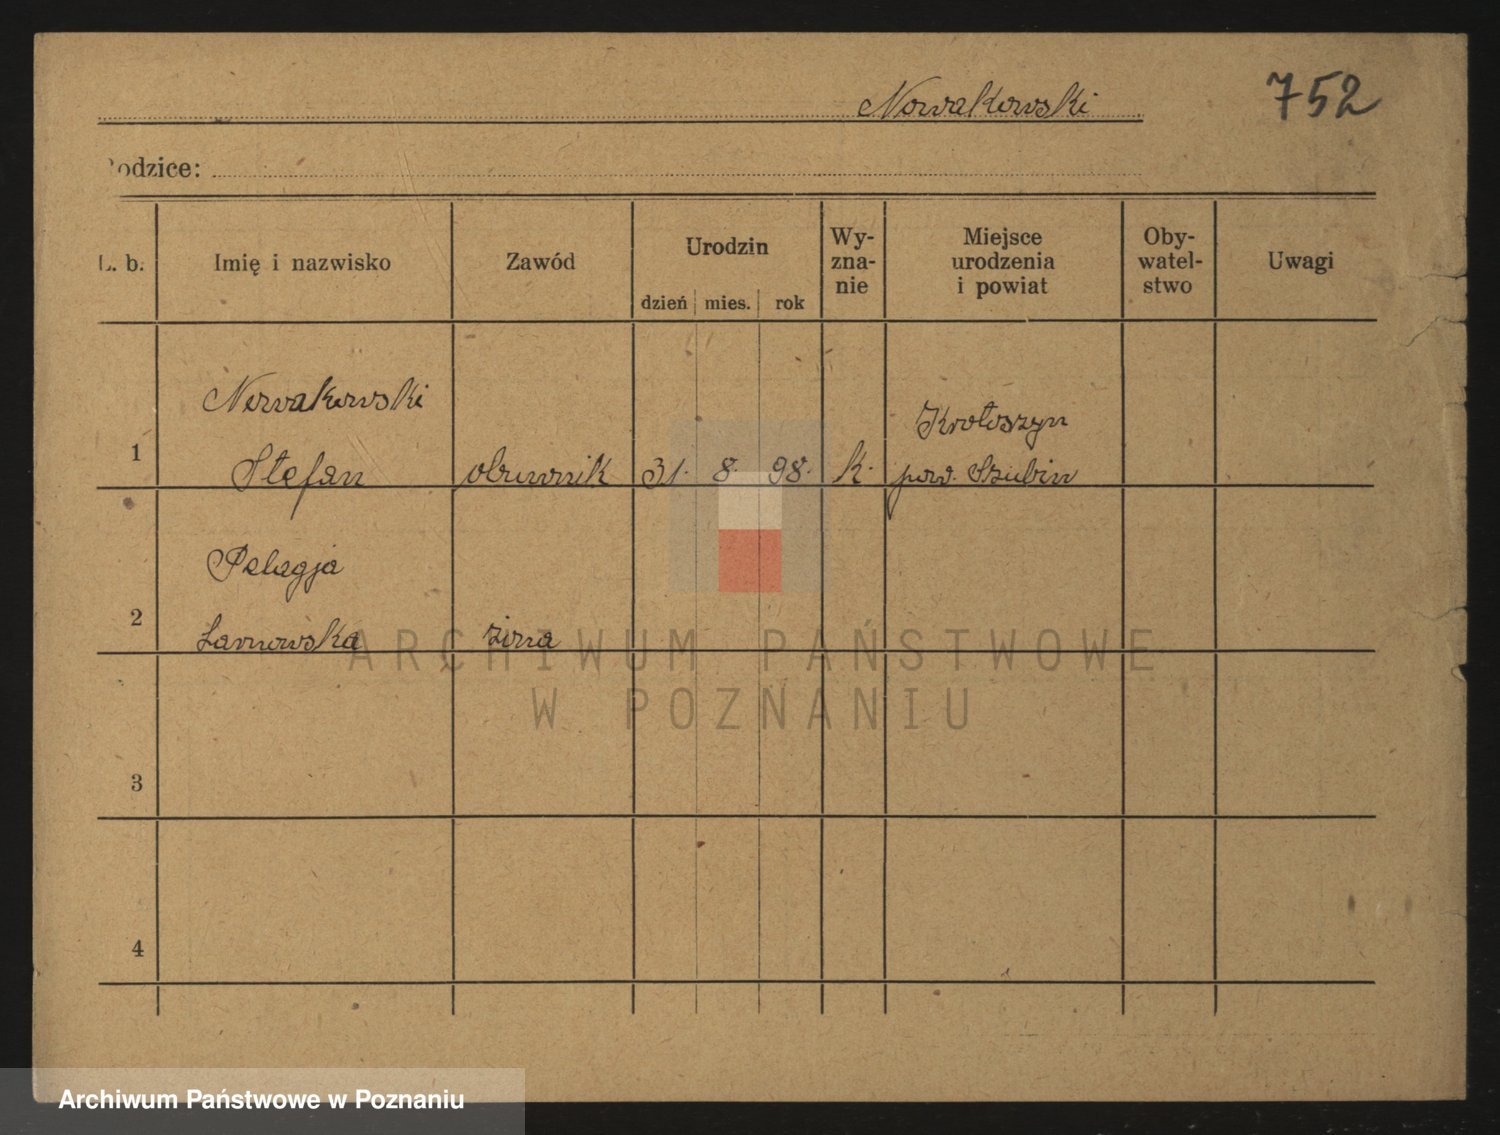 Nowakowski
752
odzice:
L. b.
Imię i nazwisko
Zawód
Urodzin
dzień mies. rok
Wy-
zna-
nie
Miejsce
urodzenia
i powiat
Oby-
watel-
stwo
Uwagi
Nowakowski
Krotoszyn
1 Stefan obuwnik 31. 8. 98. k. pow. Szubin
Pelagja
2 żona
3
4
ARCHIWUM PAŃSTWOWE
W POZNANIU
Archiwum Państwowe w Poznaniu